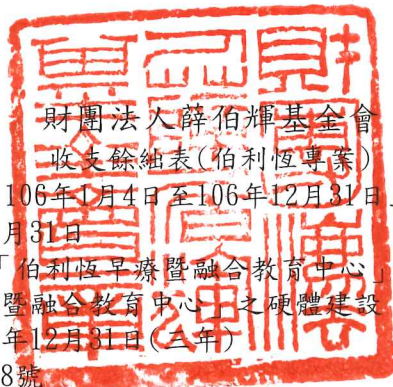 財團法人薛伯輝基金會
收支餘絀表(伯利恆專案)
106年1月4日至106年12月31日
月31日
「伯利恆早療暨融合教育中心」
暨融合教育中心」之硬體建設
年12月31日(三年)
8號